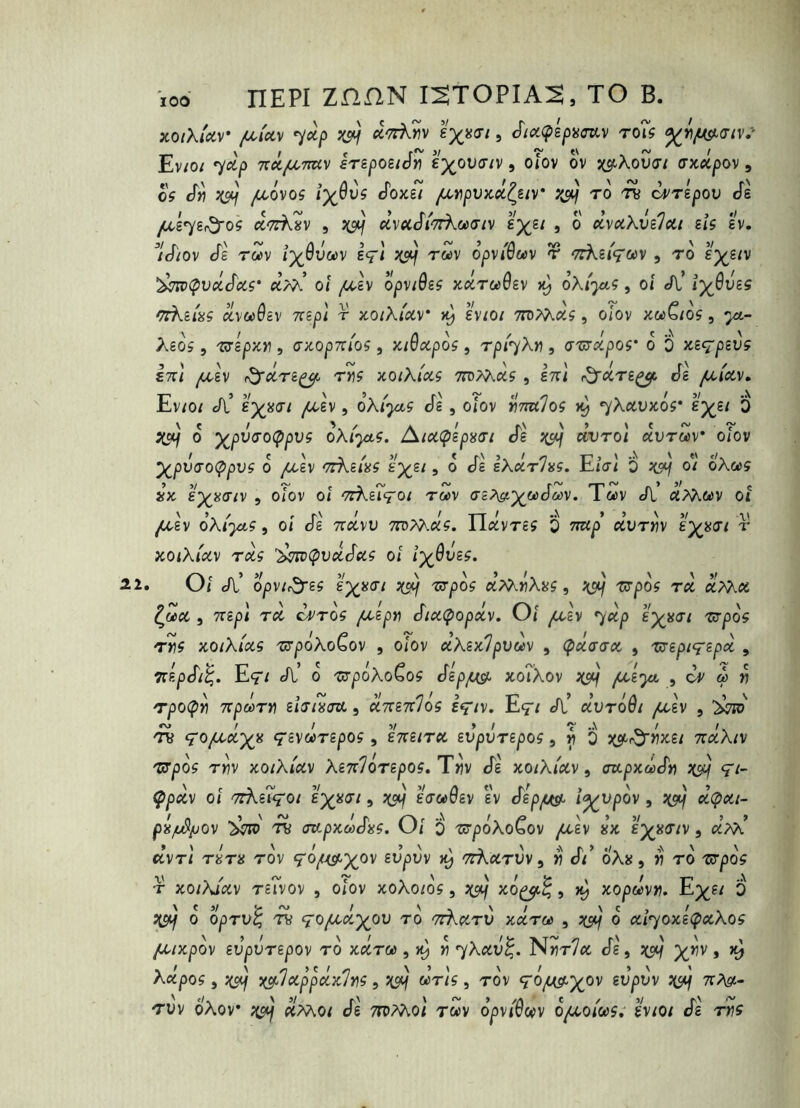 100 ΠΕΡΙ ΖΩΩΝ ΙΣΤΟΡΙΑΣ, ΤΟ Β.
κοιλίαν· μίαν γὰρ καὶ ἁπλῆν ἔχουσι, διαφέρουσαν τοῖς χήμασιν.
Ενιοι γὰρ πάμπαν ἑτεροειδῆ ἔχουσιν, οἷον ὃν καλοῦσι σκάρον,
ὃς δὴ καὶ μόνος ἰχθὺς δοκεῖ μηρυκάζειν· καὶ τὸ τοῦ ἐντέρου δὲ
μέγεθος ἁπλοῦν, καὶ ἀναδίπλωσιν ἔχει, ὃ ἀναλύεται εἰς ἕν.
Ἴδιον δὲ τῶν ἰχθύων ἐστὶ καὶ τῶν ὀρνίθων τ πλείστων, τὸ ἔχειν
ἀποφυάδας· ἀλλ' οἱ μὲν ὄρνιθες κάτωθεν καὶ ὀλίγας, οἱ δ' ἰχθύες
πλείους ἄνωθεν περὶ τ κοιλίαν· καὶ ἔνιοι πολλὰς, οἷον κωβιὸς, γα-
λεὸς, πέρκη, σκορπίος, κιθαρὸς, τρίγλη, σπάρος· ὁ δ κεστρεὺς
ἐπὶ μὲν θάτερα τῆς κοιλίας πολλὰς, ἐπὶ θάτερα δὲ μίαν.
Ενιοι δ' ἔχουσι μὲν, ὀλίγας δὲ, οἷον ἥπατος καὶ γλαυκός· ἔχει δ
καὶ ὁ χρύσοφρυς ὀλίγας. Διαφέρουσι δὲ καὶ αὐτοὶ αὑτῶν· οἷον
χρύσοφρυς ὁ μὲν πλείους ἔχει, ὁ δὲ ἐλάττους. Εἰσὶ δ καὶ οἳ ὅλως
οὐκ ἔχουσιν, οἷον οἱ πλεῖστοι τῶν σελαχωδῶν. Τῶν δ' ἄλλων οἱ
μὲν ὀλίγας, οἱ δὲ πάνυ πολλάς. Πάντες δ παρ' αὐτὴν ἔχουσι τ
κοιλίαν τὰς ἀποφυάδας οἱ ἰχθύες.
22. Οἱ δ' ὄρνιθες ἔχουσι καὶ πρὸς ἀλλήλους, καὶ πρὸς τὰ ἄλλα
ζῶα, περὶ τὰ ἐντὸς μέρη διαφοράν. Οἱ μὲν γὰρ ἔχουσι πρὸ
τῆς κοιλίας πρόλοβον, οἷον ἀλεκτρυὼν, φάσσα, περιστερὰ,
πέρδιξ. Εστι δ' ὁ πρόλοβος δέρμα κοῖλον καὶ μέγα, ἐν ᾧ ἡ
τροφὴ πρώτη εἰσιοῦσα, ἄπεπτός ἐστιν. Εστι δ' αὐτόθι μὲν, ἀπὸ
τοῦ στομάχου στενώτερος, ἔπειτα εὐρύτερος, ᾗ δ καθήκει πάλιν
πρὸς τὴν κοιλίαν λεπτότερος. Τὴν δὲ κοιλίαν, σαρκώδη καὶ στι-
φρὰν οἱ πλεῖστοι ἔχουσι, καὶ ἔσωθεν ἓν δέρμα ἰχυρὸν, καὶ ἀφαι-
ρούμενον ἀπὸ τοῦ σαρκώδους. Οἱ δ πρόλοβον μὲν οὐκ ἔχουσιν, ἀλλ'
ἀντὶ τούτου τὸν στόμαχον εὐρὺν καὶ πλατὺν, ἢ δι' ὅλου, ἢ τὸ πρὸς
τ κοιλίαν τεῖνον, οἷον κολοιὸς, καὶ κόραξ, καὶ κορώνη. Εχει δ
καὶ ὁ ὄρτυξ τοῦ στομάχου τὸ πλατὺ κάτω, καὶ ὁ αἰγοκέφαλος
μικρὸν εὐρύτερον τὸ κάτω, καὶ ἡ γλαύξ. Νῆττα δὲ, καὶ χὴν, καὶ
λάρος, καὶ καταρράκτης, καὶ ὠτὶς, τὸν στόμαχον εὐρὺν καὶ πλα-
τὺν ὅλον· καὶ ἄλλοι δὲ πολλοὶ τῶν ὀρνίθων ὁμοίως. ἔνιοι δὲ τῆς